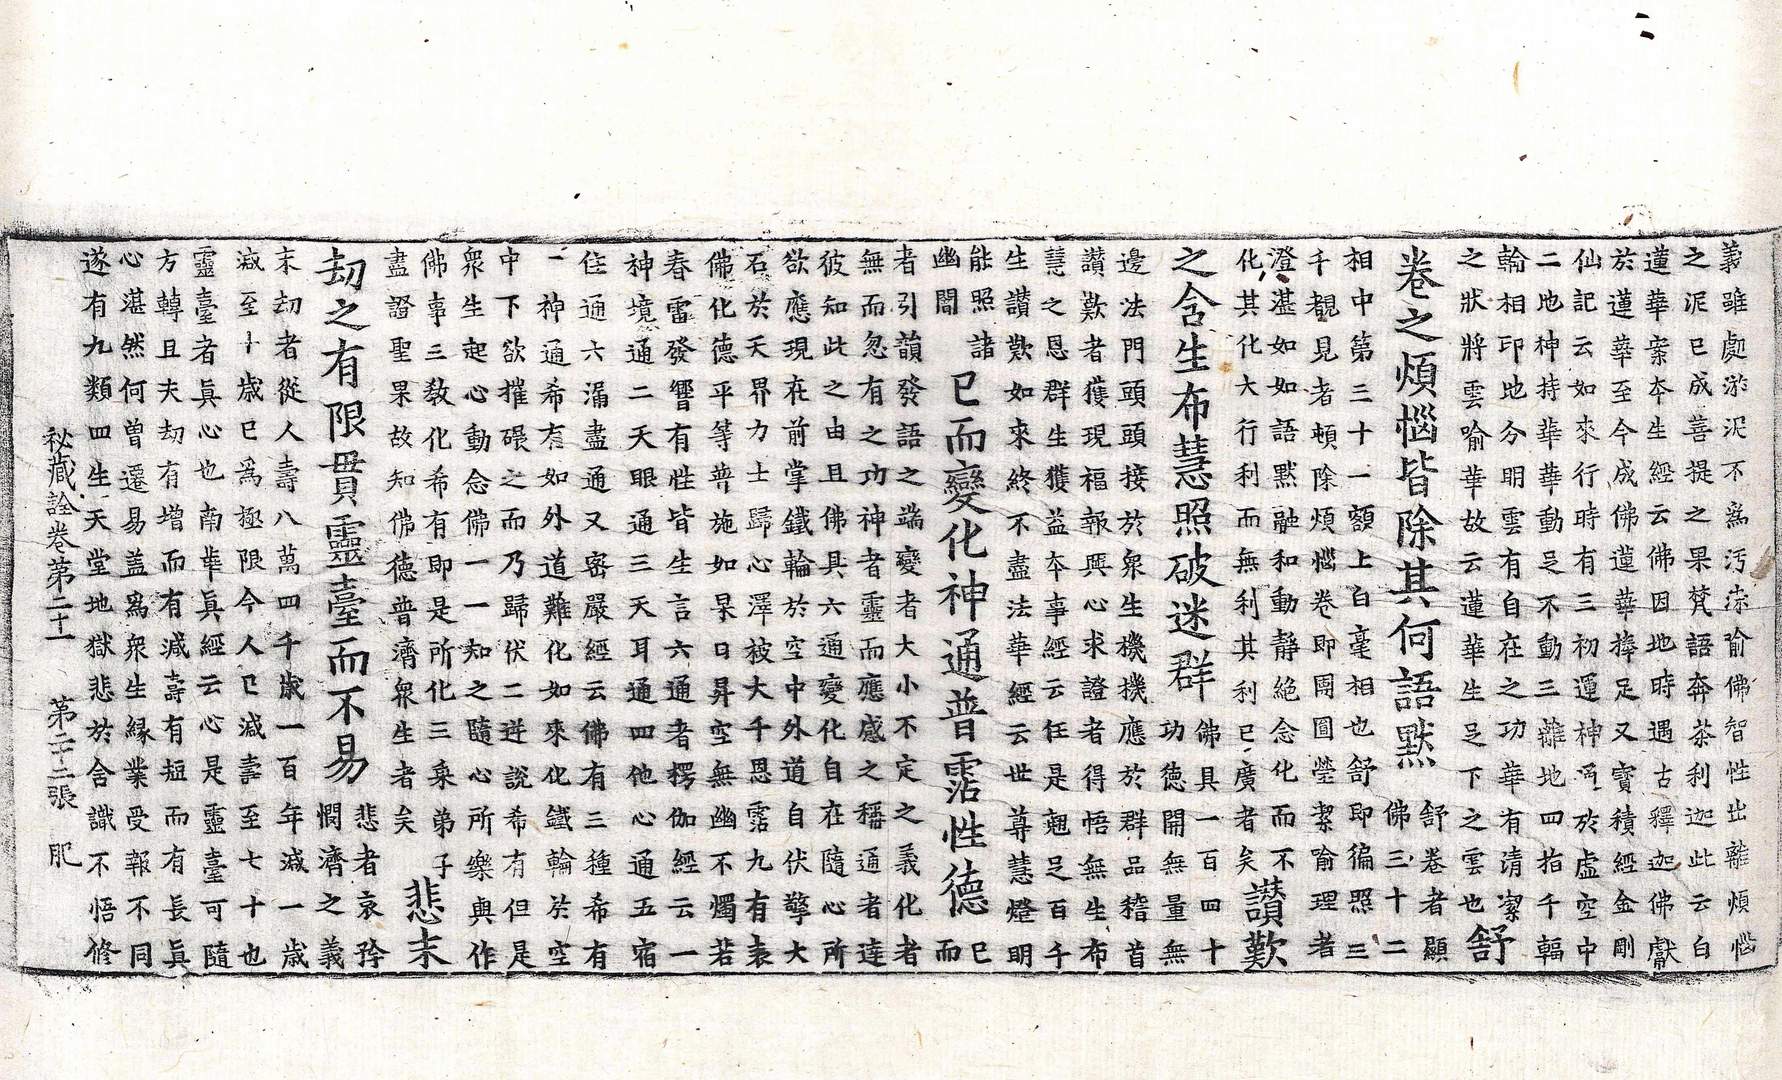 義雖處淤泥不爲汚染喻佛智性出離煩惱
之泥已成菩提之果梵語奔茶利迦此云白
蓮華案本生經云佛因地時遇古釋迦佛獻
於蓮華至今成佛蓮華捧足又寶積經金剛
仙記云如來行時有三初運神足於虛空中
二地神持華華動足不動三離地四指千輻
輪相印地分明雲有自在之功華有清潔
之狀將雲喻華故云蓮華生足下之雲也
舒
卷之煩惱皆除其何語默
舒卷者顯
佛三十二
相中第三十一額上白毫相也舒即徧照三
千覩見者頓除煩惱卷即周圓瑩潔喻理者
澄湛如如語默融和動靜絶念化而不
化其化大行利而無利其利已廣者矣
讃歎
之含生布慧照破迷群
佛具一百四十
功德開無量無
邊法門頭頭接於衆生機機應於群品稽首
讃歎者獲現福報興心求證者得悟無生布
慧之恩群生獲益本事經云任是翹足百千
生讃歎如來終不盡法華經云世尊慧燈明
能照諸
幽闇
已而變化神通普霑性德
已
而
者引韻發語之端變者大小不定之義化者
無而忽有之功神者靈而應感之稱通者達
彼知此之由且佛具六通變化自在隨心所
欲應現在前掌鐵輪於空中外道自伏擎大
石於天界力士歸心澤被大千恩霑九有表
佛化德平等普施如杲日昇空無幽不燭若
春雷發響有性皆生言六通者楞伽經云一
神境通二天眼通三天耳通四他心通五宿
住通六漏盡通又密嚴經云佛有三種希有
一神通希有如外道難化如來化鐵輪於空
中下欲摧碾之而乃歸伏二迸說希有但是
衆生起心動念佛一一知之隨心所樂與作
佛事三教化希有即是所化三乗弟子
盡證聖果故知佛德普濟衆生者矣
悲末
劫之有限貫靈臺而不易
悲者哀矜
憫濟之義
末劫者從人壽八萬四千歲一百年減一歲
減至十歲已爲極限今人已減壽至七十也
靈臺者眞心也南華眞經云心是靈臺可隨
方轉且夫劫有增而有減壽有短而有長眞
心湛然何曾遷易盖爲衆生縁業受報不同
遂有九類四生天堂地獄悲於含識不悟修
秘藏詮卷第二十一　第二十二張　肥